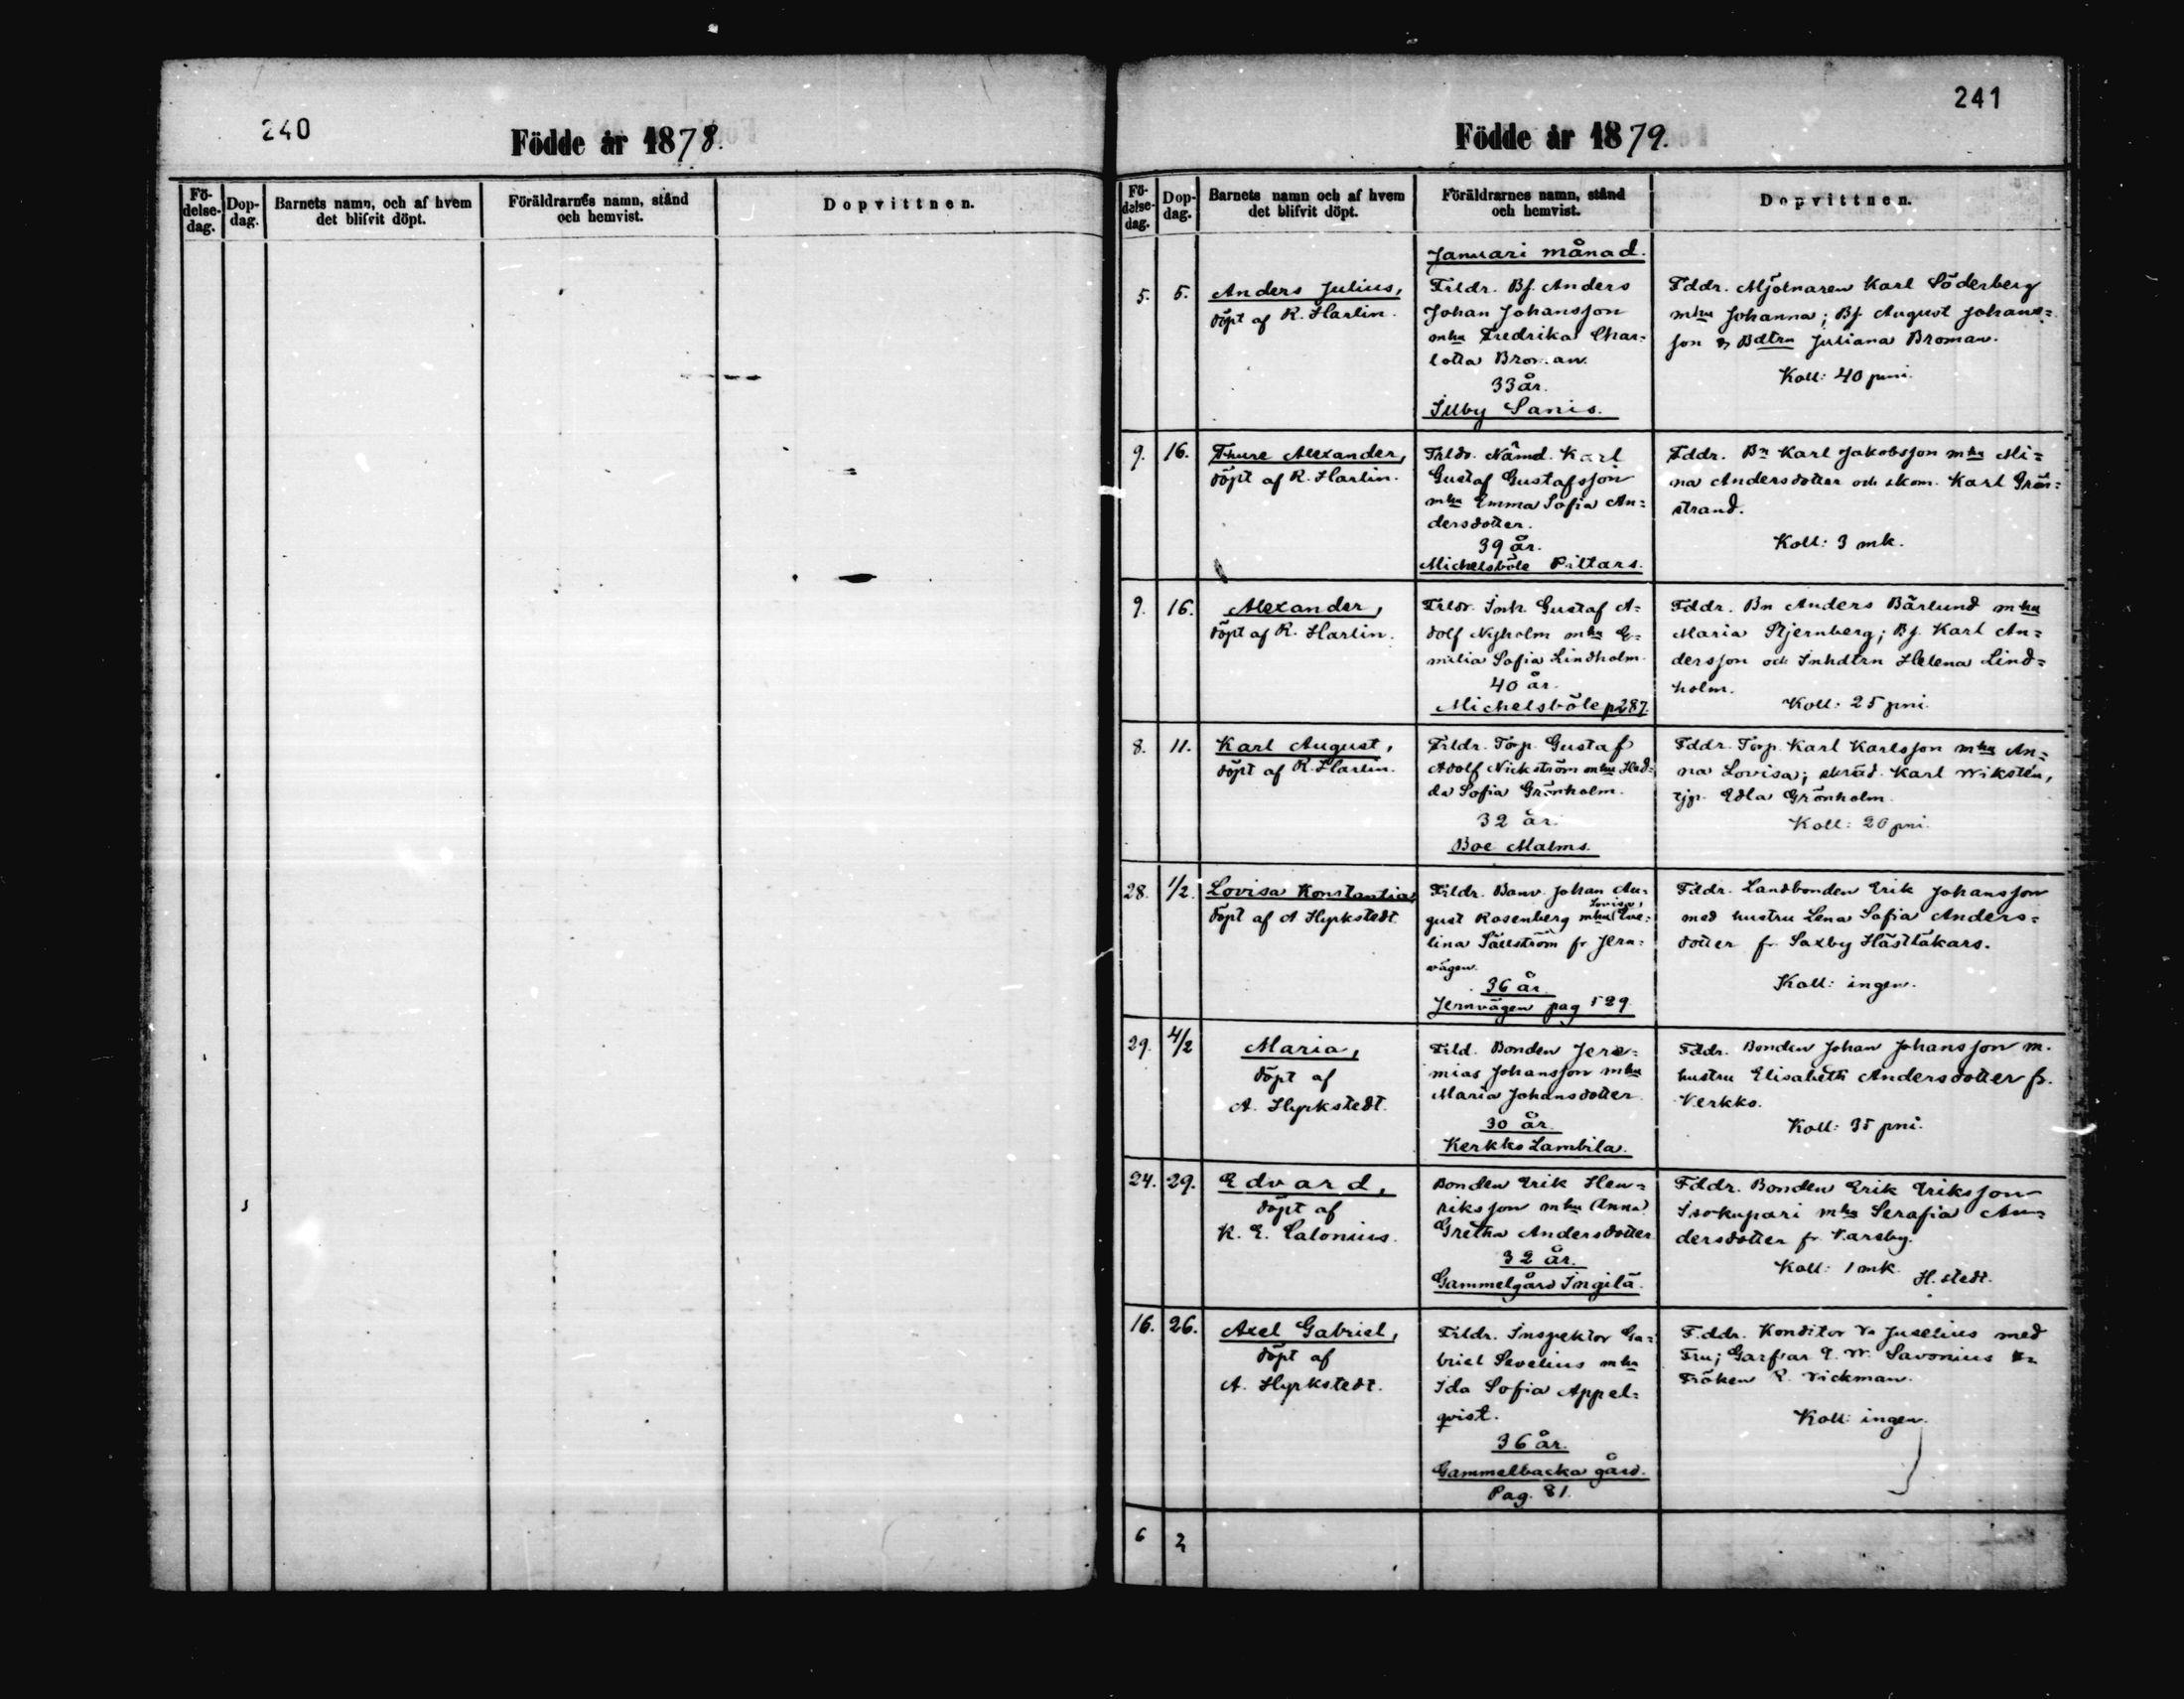 240
Födde år 1878.
Fö-
delse-
dag.
Dop-
dag.
Barnets namn, och af hvem
det blifvit döpt.
Föräldrarnes namn, stånd
och hemvist.
Dopvittnen.
241
Födde år 1879.
Fö-
delse-
dag.
Dop-
dag.
Barnets namn och af hvem
det blifvit döpt.
Föräldrarnes namn, stånd
och hemvist.
Dopvittnen.
Januari månad.
5.
5.
Anders Julius,
döpt af R. Harlin.
Frldr. Bf. Anders
Johan Johansson
mhu Fredrika Char=
lotta Broman.
33 år.
Illby Sanis.
Fddr. Mjölnaren Karl Söderberg
mhu Johanna; Bf August Johans=
son & Bdtrn Juliana Broman.
Koll: 40 pni.
9.
16.
Thure Alexander,
döpt af R. Harlin.
Frldr. Nämd. Karl
Gustaf Gustafsson
mhu Emma Sofia An=
dersdotter.
39 år.
Michelsböle Pittars.
Fddr. Bn Karl Jakobsson mhu Mi=
na Andersdotter och skom. Karl Grön=
strand.
Koll: 3 mk.
9.
16.
Alexander,
döpt af R. Harlin.
Frldr. Inh. Gustaf A=
dolf Nyholm mhu E=
milia Sofia Lindholm.
40 år.
Michelsböle p 287.
Fddr. Bn Anders Bärlund mhu
Maria Stjernberg; Bf. Karl An=
dersson och Inhdtrn Helena Lind=
holm.
Koll: 25 pni.
8.
11.
Karl August,
döpt af R. Harlin.
Frldr. Torp. Gustaf
Adolf Nickström mhu Hed=
da Sofia Grönholm.
32 år.
Boe Malms.
Fddr. Torp. Karl Karlsson mhu An=
na Lovisa; skräd. Karl Wikstén,
Edla Grönholm.
Koll: 20 pni.
28.
1/2
Lovisa Konstantia,
döpt af A Hyrkstedt.
Frldr. Banv. Johan Au=
Lovisa,
gust Rosenberg mhu Eve=
lina Sällström fr Jern=
vägen.
36 år.
Jernvägen pag 529.
Fddr. Landbonden Erik Johansson
med hustru Lena Sofia Anders=
dotter fr. Saxby Hästläkars.
Koll: ingen.
29.
4/2
Maria,
döpt af
A. Hyrkstedt.
Frld. Bonden Jere=
mias Johansson mhu
Maria Johansdotter
30 år.
Kerkko Lambila.
Fddr. Bonden Johan Johansson m.
hustru Elisabeth Andersdotter fr.
Kerkko.
Koll: 35 pni.
24.
29.
Edvard,
döpt af
K. E. Calonius.
Bonden Erik Hen=
riksson mhu (Anna)
Gretha Andersdotter
32 år.
Gammelgård Ingilä.
Fddr. Bonden Erik Eriksson
Isokupari mhu Serafia An=
dersdotter fr.
Koll: 1 mk.
H.stedt.
16.
26.
Axel Gabriel,
döpt af
A. Hyrkstedt.
Frldr. Inspektor Ga=
briel Sevelius mhu
Ida Sofia Appel=
qvist.
36 år.
Gammelbacka gård.
Pag. 81.
Fddr. Konditor Juselius med
Fru; Garfvar E. W. Savonius
Fröken Wickman.
Koll: ingen.
6
2